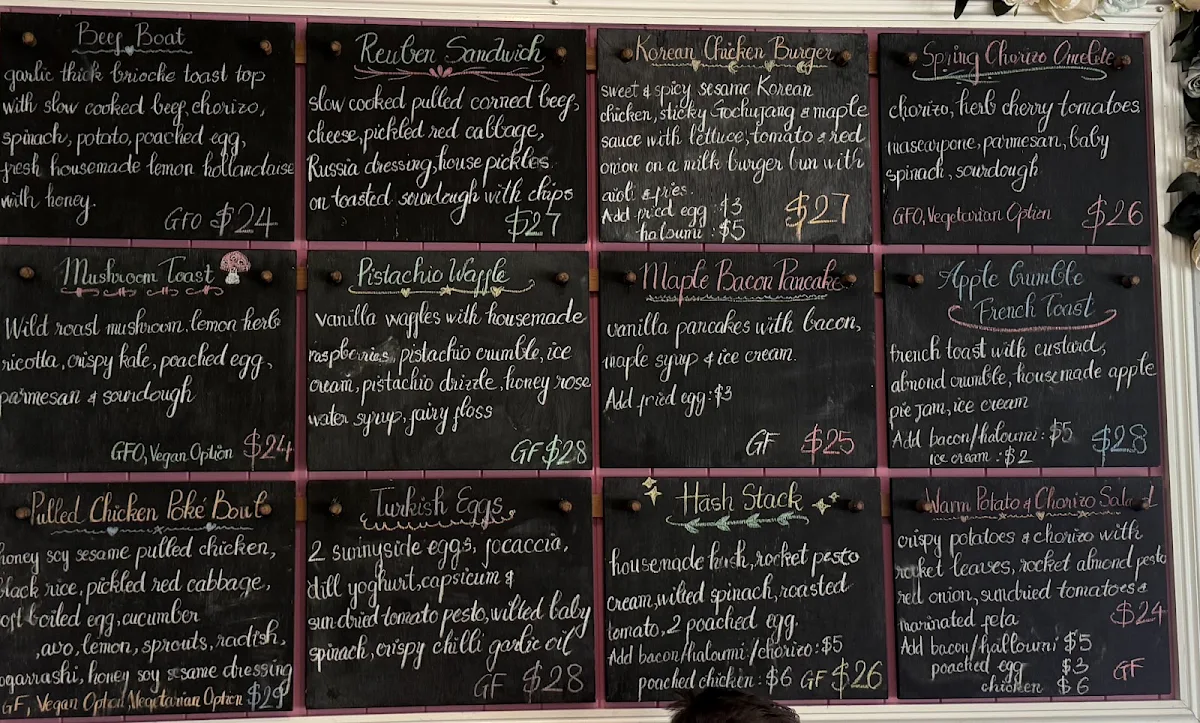 Beef Boat
garlic thick brioche toast top
with slow cooked beef, chorizo,
spinach, potato, poached egg,
fresh housemade lemon hollandaise
with honey.
GFO $24
Reuben Sandwich
slow cooked pulled corned beef,
cheese, pickled red cabbage,
Russia dressing, house pickles
on toasted sourdough with chips
$27
Korean Chicken Burger
sweet & spicy sesame Korean
chicken, sticky Gochujang & maple
sauce with lettuce, tomato & red
onion on a milk burger bun with
aioli & fries.
Add fried egg : $3
haloumi : $5
$27
Spring Chorizo Omelette
chorizo, herb cherry tomatoes
mascarpone, parmesan, baby
spinach, sourdough
GFO, Vegetarian Option $26
Mushroom Toast
Wild roast mushroom, lemon herb
ricotta, crispy kale, poached egg,
parmesan & sourdough
GFO, Vegan Option $24
Pistachio Waffle
vanilla waffles with housemade
raspberries, pistachio crumble, ice
cream, pistachio drizzle, honey rose
water syrup, fairy floss
GF $28
Maple Bacon Pancake
vanilla pancakes with bacon,
maple syrup & ice cream.
Add fried egg : $3
GF $25
Apple Crumble
French Toast
french toast with custard,
almond crumble, housemade apple
pie jam, ice cream
Add bacon/haloumi : $5
ice cream : $2
$28
Pulled Chicken Poké Bowl
honey soy sesame pulled chicken,
black rice, pickled red cabbage,
oft boiled egg, cucumber
, avo, lemon, sprouts, radish,
ogarrashi, honey soy sesame dressing
GF, Vegan Option, Vegetarian Option $29
Turkish Eggs
2 sunnyside eggs, focaccia,
dill yoghurt, capsicum &
sundried tomato pesto, wilted baby
spinach, crispy chilli garlic oil
GF $28
Hash Stack
housemade hash, rocket pesto
cream, wilted spinach, roasted
tomato, 2 poached egg.
Add bacon/haloumi/chorizo : $5
poached chicken : $6 GF $26
Warm Potato & Chorizo Salad
crispy potatoes & chorizo with
rocket leaves, rocket almond pesto
red onion, sundried tomatoes &
marinated feta
$24
Add bacon/halloumi $5
poached egg $3
chicken $6
GF